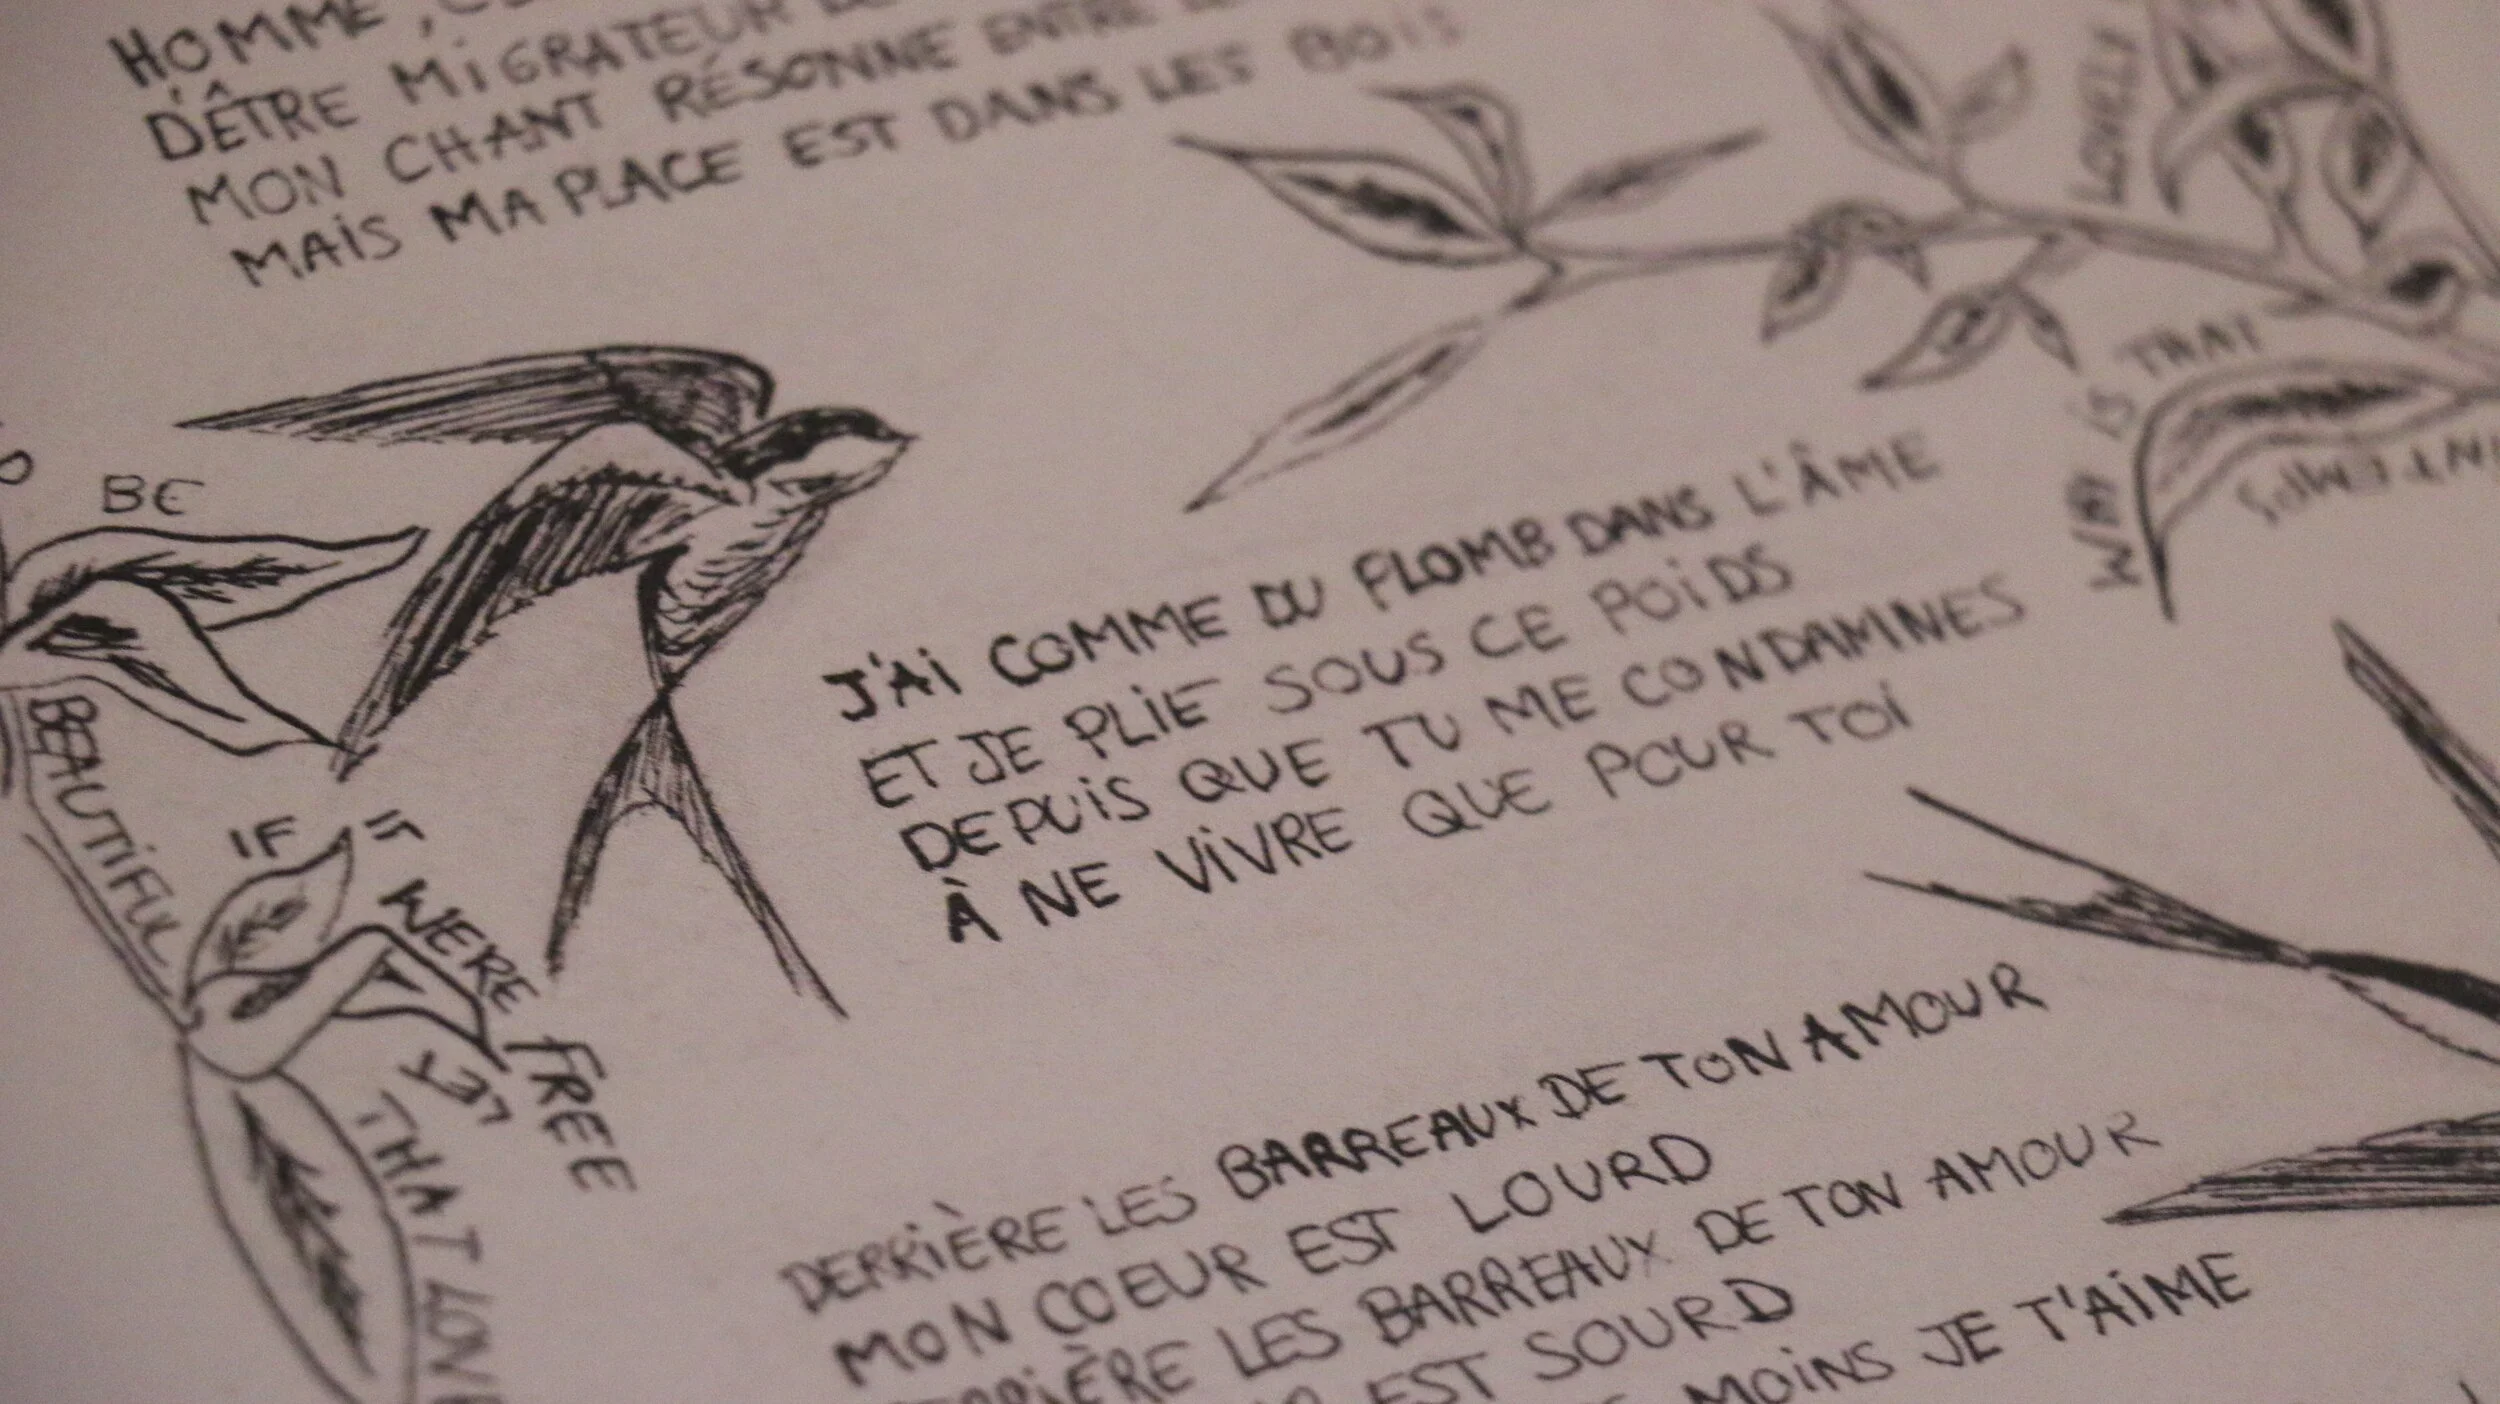 HOMME,
D'ÊTRE MIGRATEUR
MON CHANT RÉSONNE ENTRE
MAIS MA PLACE EST DANS LES BOIS
LOVELY
WHY IS THAT
BE
BEAUTIFUL
IF
WERE FREE
THAT
J'AI COMME DU PLOMB DANS L'ÂME
ET JE PLIE SOUS CE POIDS
DEPUIS QUE TU ME CONDAMNES
À NE VIVRE QUE POUR TOI
DERRIÈRE LES BARREAUX DE TON AMOUR
MON COEUR EST LOURD
LES BARREAUX DE TON AMOUR
EST SOURD
MOINS JE T'AIME